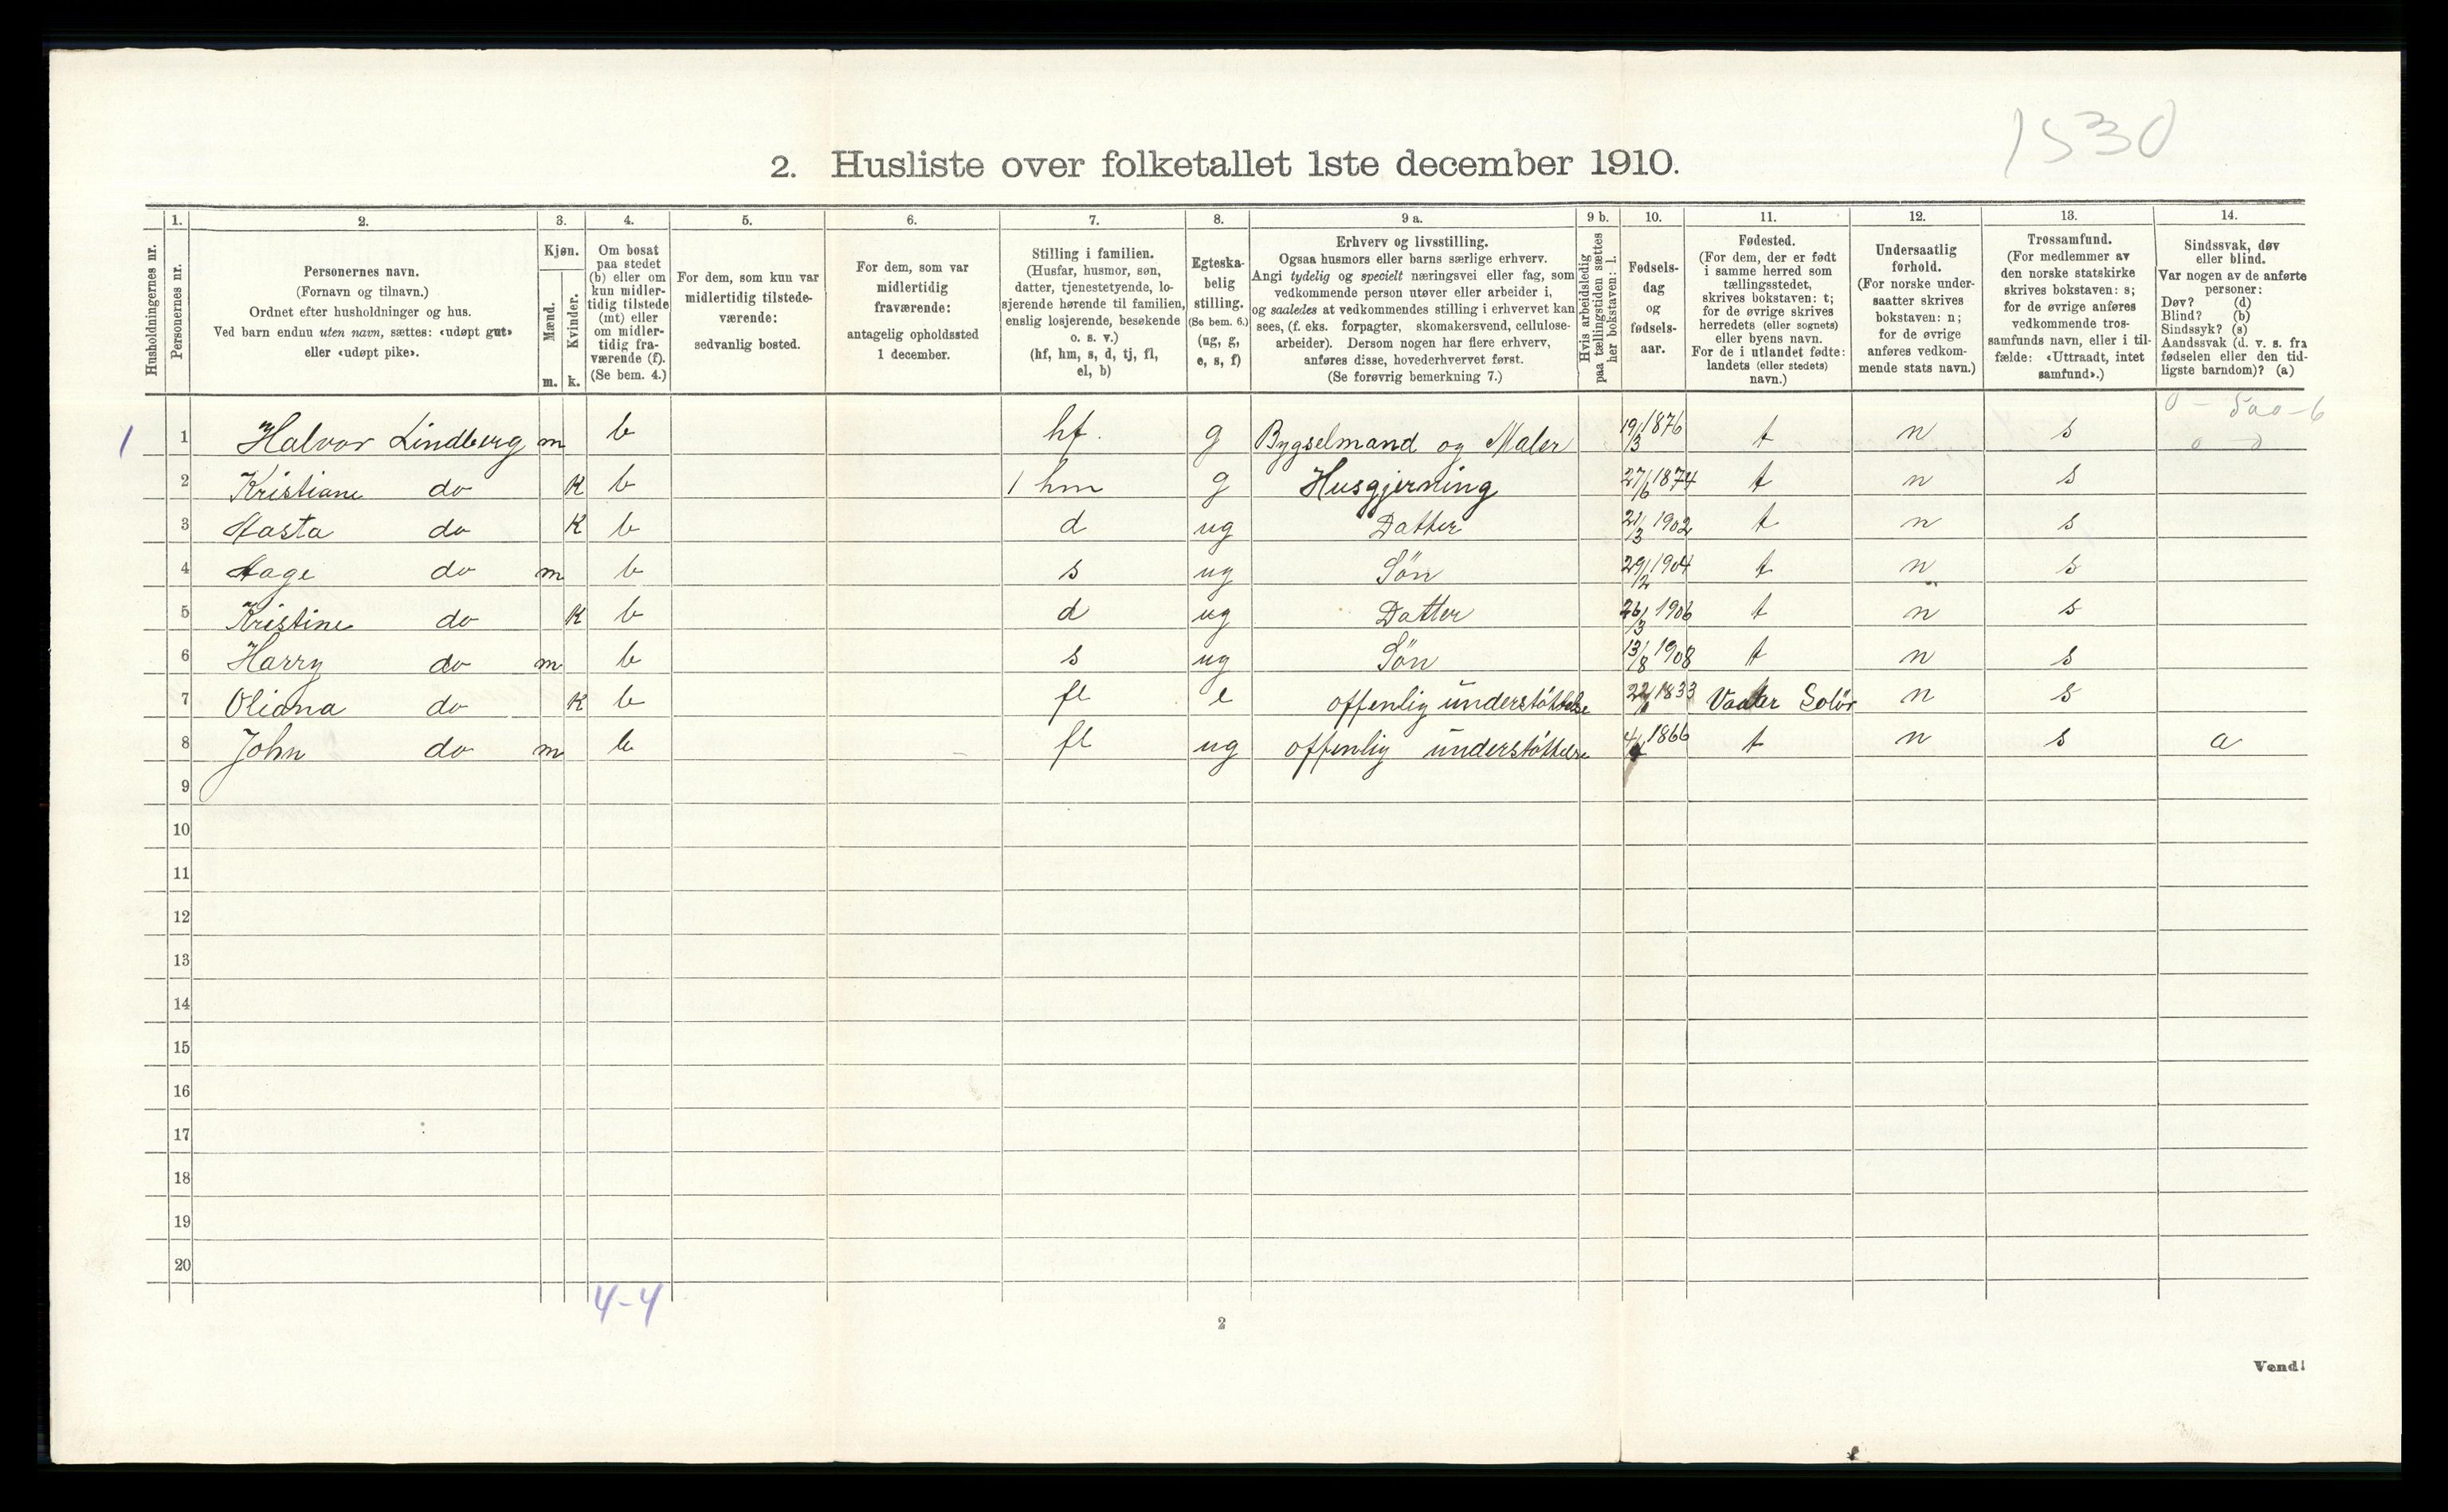 1530
2. Husliste over folketallet 1ste december 1910.
Husholdningernes nr.
1. Personernes nr.
2. Personernes navn. (Fornavn og tilnavn.) Ordnet efter husholdninger og hus. Ved barn endnu uten navn, sættes: «udøpt gut» eller «udøpt pike».
3. Kjøn. Mænd. m. Kvinder. k.
4. Om bosat paa stedet (b) eller om kun midler-tidig tilstede (mt) eller om midler-tidig fra-værende (f). (Se bem. 4.)
5. For dem, som kun var midlertidig tilstede-værende: sedvanlig bosted.
6. For dem, som var midlertidig fraværende: antagelig opholdssted 1 december.
7. Stilling i familien. (Husfar, husmor, søn, datter, tjenestetyende, lo-sjerende hørende til familien, enslig losjerende, besøkende o. s. v.) (hf, hm, s, d, tj, fl, el, b)
8. Egteska-belig stilling. (Se bem. 6.) (ug, g, e, s, f)
9 a. Erhverv og livsstilling. Ogsaa husmors eller barns særlige erhverv. Angi tydelig og specielt næringsvei eller fag, som vedkommende person utøver eller arbeider i, og saaledes at vedkommendes stilling i erhvervet kan sees, (f. eks. forpagter, skomakersvend, cellulose-arbeider). Dersom nogen har flere erhverv, anføres disse, hovederhvervet først. (Se forøvrig bemerkning 7.)
9 b. Hvis arbeidsledig paa tællingstiden sættes her bokstaven: l.
10. Fødsels-dag og fødsels-aar.
11. Fødested. (For dem, der er født i samme herred som tællingsstedet, skrives bokstaven: t; for de øvrige skrives herredets (eller sognets) eller byens navn. For de i utlandet fødte: landets (eller stedets) navn.)
12. Undersaatlig forhold. (For norske under-saatter skrives bokstaven: n; for de øvrige anføres vedkom-mende stats navn.)
13. Trossamfund. (For medlemmer av den norske statskirke skrives bokstaven: s; for de øvrige anføres vedkommende tros-samfunds navn, eller i til-fælde: «Uttraadt, intet samfund».)
14. Sindssvak, døv eller blind. Var nogen av de anførte personer: Døv? (d) Blind? (b) Sindssyk? (s) Aandssvak (d. v. s. fra fødselen eller den tid-ligste barndom)? (a)
0 - 500-6
1 1 Halvor Lindberg m b hf. g Bygselmand og Maler 19/3 1876 t n s
2 Kristiane do K b 1 hm g Husgjerning 27/6 1874 t n s
3 Aasta do K b d ug Datter 21/3 1902 t n s
4 Aage do m b s ug Sön 29/2 1904 t n s
5 Kristine do K b d ug Datter 26/3 1906 t n s
6 Harry do m b s ug Sön 13/8 1908 t n s
7 Oliana do K b fl e offenlig understöttelse 1833 Vaaler Solör n s
8 John do m b fl ug offenlig understöttelse 1866 t n s a
9
10
11
12
13
14
15
16
17
18
19
20
4-4
2
Vend!